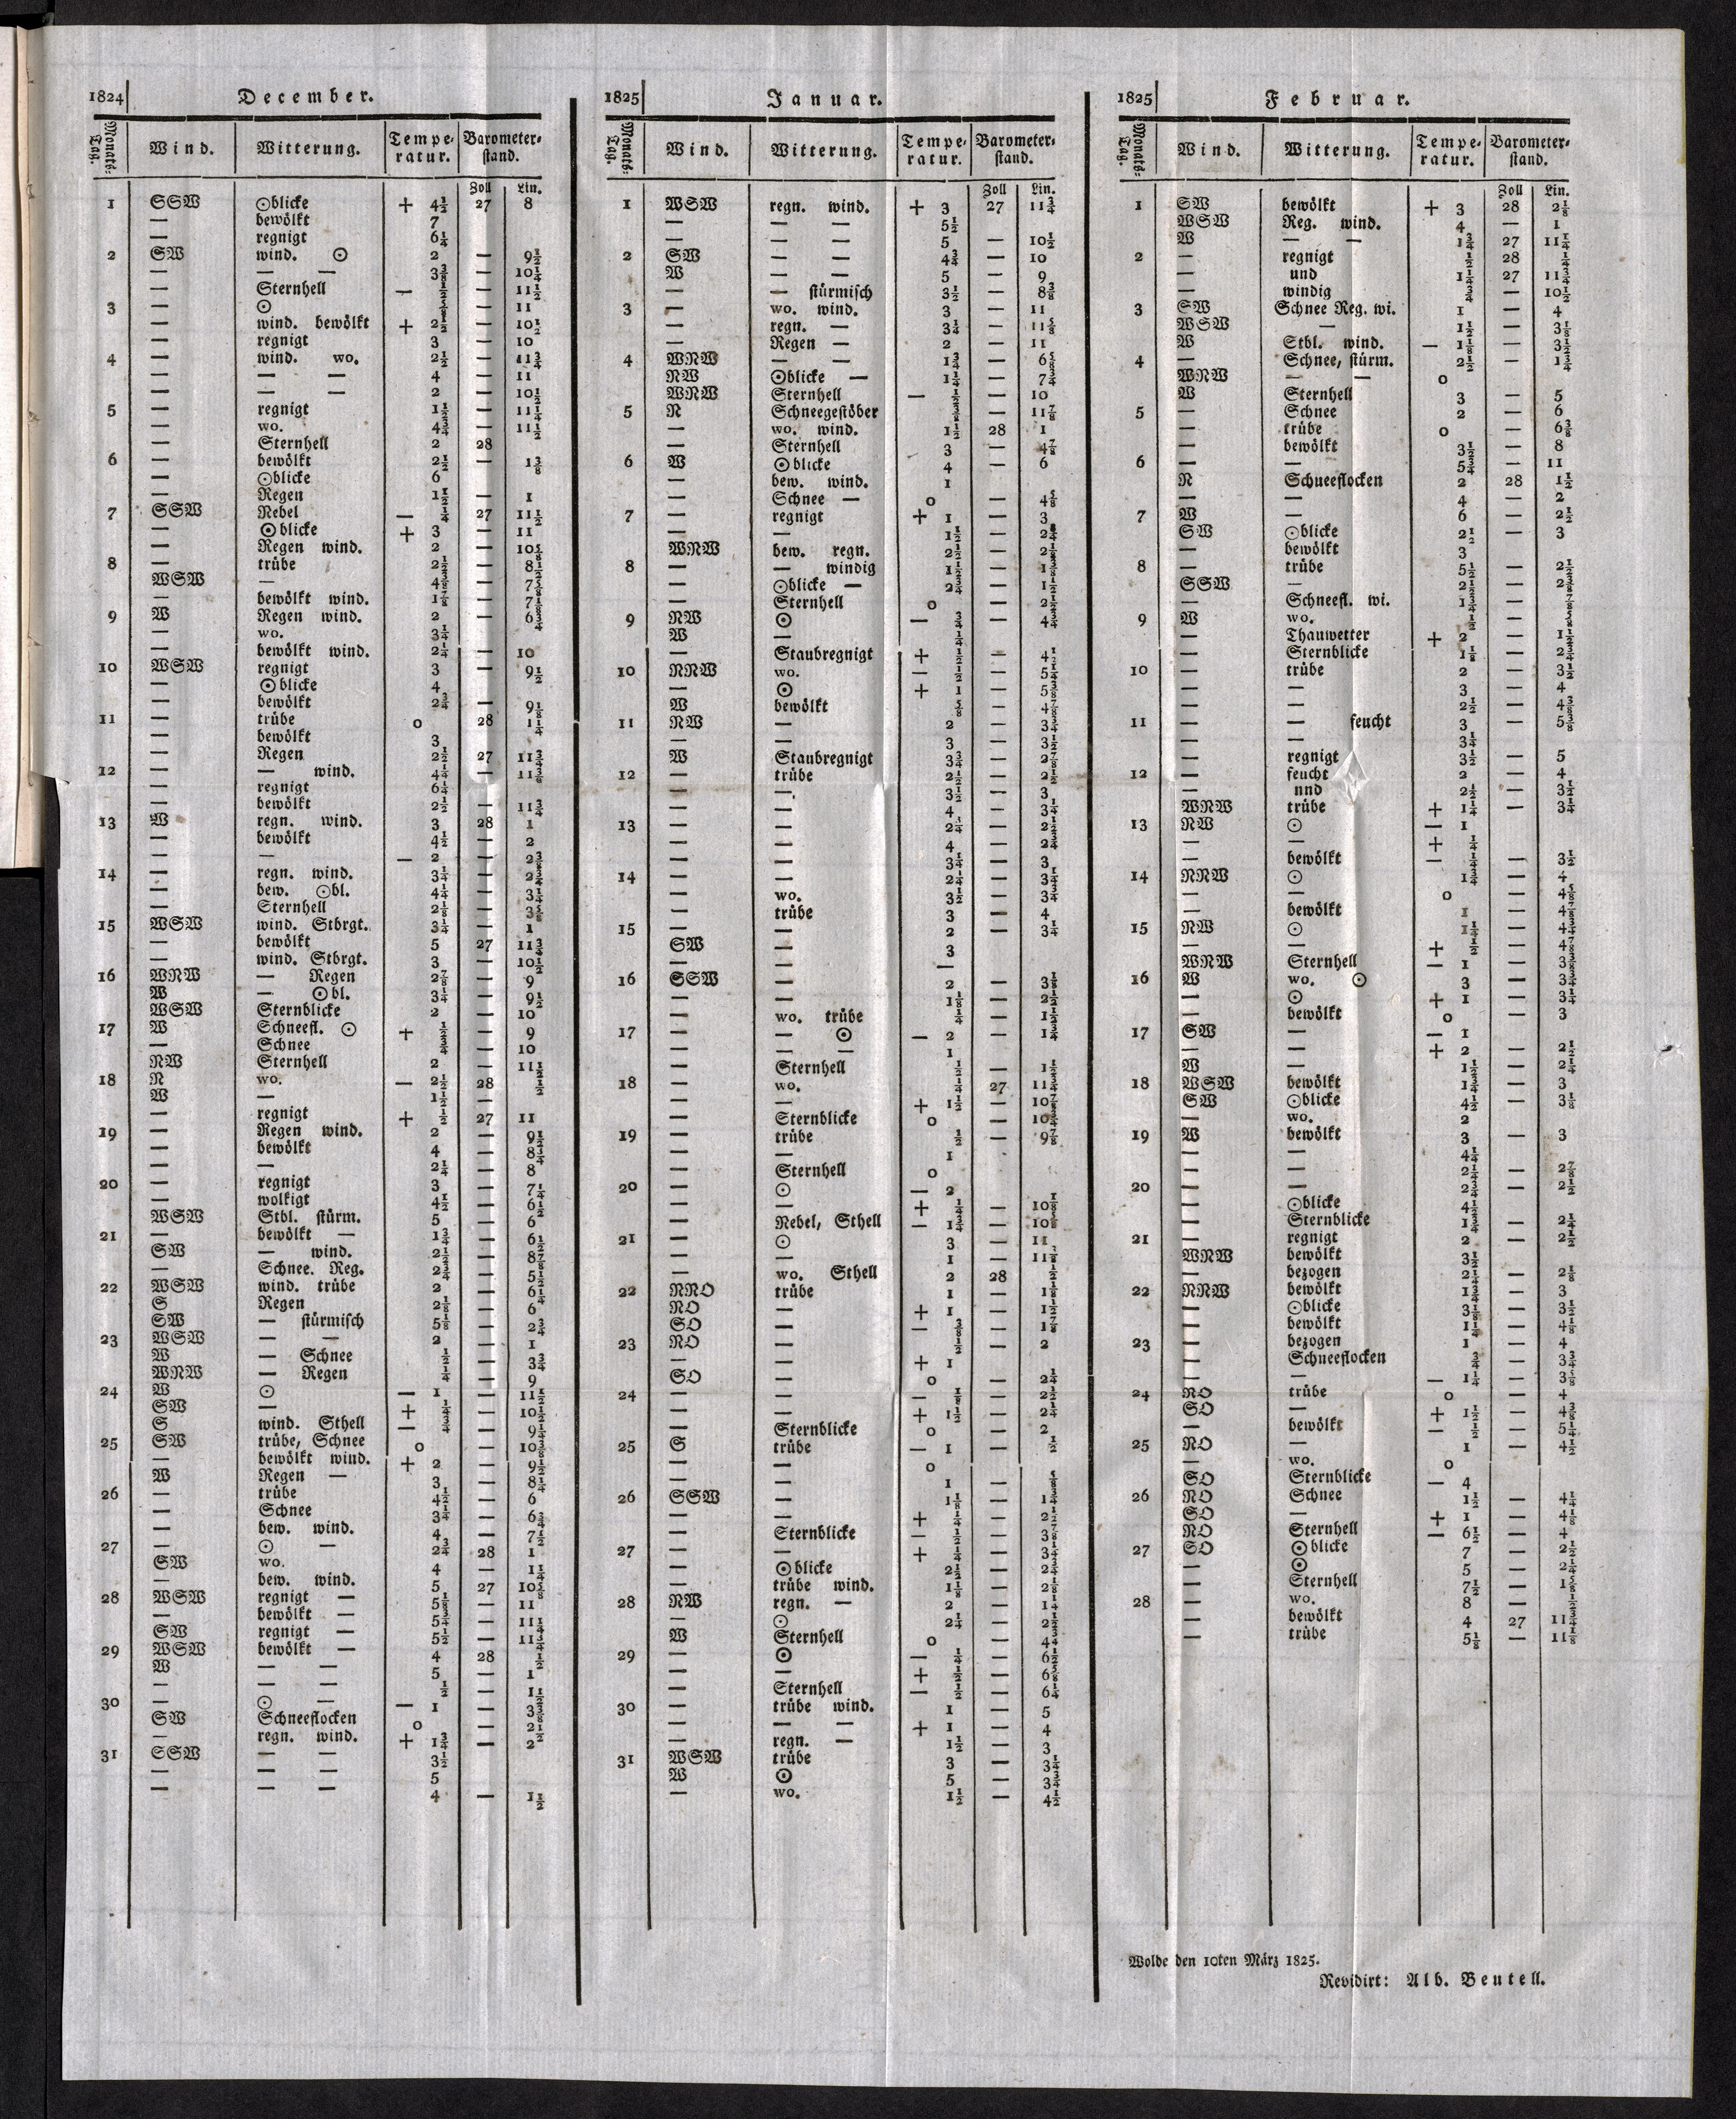 1824 December.
Monats-Tag. Wind. Witterung. Tempe-ratur. Barometer-stand.
Zoll Lin.
1 SSW ☉blicke + 4½ 27 8
— bewölkt 7
— regnigt 6¼
2 SW wind. ☉ 2 — 9½
— — — 3¾ — 10¼
— Sternhell — — 11½
3 — ☉ — 11
— wind. bewölkt + 2½ — 10½
— regnigt 3 — 10
4 — wind. wo. 2½ — 11¾
— — — 4 — 11
— — — 2 — 10½
5 — regnigt 1½ — 11¼
— wo. 4¾ — 11½
— Sternhell 2 28
6 — bewölkt 2½ — 1⅜
— ☉blicke 6
— Regen 1½ — 1
7 SSW Nebel — 27 11½
— ☉blicke + 3 — 11
— Regen wind. 2 — 10⅝
8 — trübe 2¼ — 8½
WSW — 4⅜ — 7⅝
— bewölkt wind. 1⅞ — 7⅛
9 W Regen wind. 2 — 6¾
— wo. 3¼
— bewölkt wind. 2¼ — 10
10 WSW regnigt 3 — 9½
— ☉blicke 4
— bewölkt 2¾ — 9⅛
11 — trübe 0 28 1¼
— bewölkt 3
— Regen 2½ 27 11¾
12 — — wind. 4¼ — 11⅜
— regnigt 6¼
— bewölkt 2½ — 11¾
13 W regn. wind. 3 28 1
— bewölkt 4½ — 2
— — — 2 — 2¾
14 — regn. wind. 3¼ — 2¾
— bew. ☉bl. 4¼ — 3¼
— Sternhell 2⅛ — 3⅝
15 WSW wind. Stbrgt. 3¼ — 1
— bewölkt 5 27 11¾
— wind. Stbrgt. 3 — 10½
16 WNW — Regen 2⅞ — 9
W — ☉bl. 3¼ — 9½
WSW Sternblicke 2 — 10
17 W Schneefl. ☉ + ½ — 9
— Schnee ¾ — 10
NW Sternhell 2 — 11½
18 N wo. — 2½ 28 ½
W — 1½
— regnigt + ½ 27 11
19 — Regen wind. 2 — 9½
— bewölkt 4 — 8¼
— — 2¼ — 8
20 — regnigt 3 — 7¼
— wolkigt 4½ — 6½
WSW Stbl. stürm. 5 — 6
21 — bewölkt — 1¾ — 6½
SW — wind. 2½ — 8⅞
— Schnee. Reg. 2¾ — 5½
22 WSW wind. trübe 2 — 6¼
S Regen 2⅛ — 6
SW — stürmisch 5⅛ — 2¾
23 WSW — — 2 — 1
W — Schnee ½ — 3¾
WNW — Regen ¼ — 9
24 W ☉ — 1 — 11½
SW — + ¼ — 10½
S wind. Sthell — ¾ — 9¼
25 SW trübe, Schnee 0 — 10⅜
— bewölkt wind. + 2 — 9½
W Regen — 3 — 8¼
26 — trübe 4½ — 6
— Schnee 3¼ — 6¾
— bew. wind. 4 — 7½
27 — ☉ — 2¾ 28 1
SW wo. 4 — 1¼
— bew. wind. 5 27 10⅝
28 WSW regnigt — 5⅜ — 11
— bewölkt — 5¾ — 11¼
SW regnigt — 5½ — 11¾
29 WSW bewölkt — 4 28 ½
W — — 5 — 1
— — — ½ — 1½
30 — ☉ — — 1 — 3⅜
SW Schneeflocken 0 — 2½
— regn. wind. + 1¾ — 2
31 SSW — — 3½
— — — 5
— — — 4 — 1½
1825 Januar.
Monats-Tag. Wind. Witterung. Tempe-ratur. Barometer-stand.
Zoll Lin.
1 WSW regn. wind. + 3 27 11¾
— — — 5½
— — — 5 — 10½
2 SW — — 4¾ — 10
W — — 5 — 9
— — stürmisch 3½ — 8⅜
3 — wo. wind. 3 — 11
— regn. — 3¼ — 11⅝
— Regen — 2 — 11
4 WNW — — 1¾ — 6⅝
NW ☉blicke — 1¼ — 7¾
WNW Sternhell — ½ — 10
5 N Schneegestöber — 11⅞
— wo. wind. 1½ 28 1
— Sternhell 3 — 4⅞
6 W ☉blicke 4 — 6
— bew. wind. 1
— Schnee — 0 — 4⅝
7 — regnigt + 1 — 3
— — 1½ — 2¾
WNW bew. regn. 2½ — 2⅛
8 — — windig 1½ — 1⅞
— ☉blicke — 2¾ — 1½
— Sternhell 0 — 2½
9 NW ☉ — ¾ — 4¾
W — ¼
— Staubregnigt + ½ — 4½
10 NNW wo. — ½ — 5¼
— ☉ + 1 — 5⅜
W bewölkt ⅝ — 4⅞
11 NW — 2 — 3¾
— — 3 — 3½
W Staubregnigt 3¾ — 2⅞
12 — trübe 2½ — 2½
— — 3½ — 3
— — 4 — 3¼
13 — — 2¾ — 2½
— — 4 — 2¾
— — 3¼ — 3
14 — — 2¼ — 3¾
— wo. 3½ — 3¼
— trübe 3 — 4
15 — — 2 — 3¼
SW — 3
— — —
16 SSW — 2 — 3⅛
— — 1⅛ — 2½
— wo. trübe ¼ — 1½
17 — — ☉ — 2 — 1¾
— — — 1
— Sternhell 1½ — 1½
18 — wo. 1¼ 27 11¾
— — + 1½ — 10⅞
— Sternblicke 0 — 10¾
19 — trübe ½ — 9⅞
— — 1
— Sternhell 0
20 — ☉ — 2
— — + ¼ — 10⅛
— Nebel, Sthell — 1¾ — 10⅝
21 — ☉ 3 — 11
— — 1 — 11⅞
— wo. Sthell 2 28 ½
22 NNO trübe 1 — 1⅛
NO — + 1 — 1½
SO — — ⅜ — 1⅞
23 NO — ½ — 2
— — + 1
SO — 0 — 2¼
24 — — — ⅛ — 2½
— — + 1½ — 2¼
— Sternblicke 0 — 2
25 S trübe — 1 — ½
— — 0
— — 1 — ⅝
26 SSW — 1⅛ — 1¾
— — + ¼ — 2½
— Sternblicke — ½ — 3⅞
27 — — + ¼ — 3¼
— ☉blicke 2½ — 2¾
— trübe wind. 1⅛ — 2⅛
28 NW regn. — 2 — 1¼
— ☉ 2¼ — 2½
W Sternhell 0 — 4¾
29 — ☉ — ¼ — 6½
— — + ½ — 6⅝
— Sternhell — ½ — 6¼
30 — trübe wind. 1 — 5
— — — + 1 — 4
— regn. — 1½ — 3
31 WSW trübe 3 — 3¼
W ☉ 5 — 3¾
— wo. 1½ — 4½
1825 Februar.
Monats-Tag. Wind. Witterung. Tempe-ratur. Barometer-stand.
Zoll Lin.
1 SW bewölkt + 3 28 2⅛
WSW Reg. wind. 4 — 1
W — — 1¾ 27 11¼
2 — regnigt ½ 28
— und 1¼ 27 11¾
— windig ¾ — 10½
3 SW Schnee Reg. wi. 1 — 4
WSW — 1½ — 3⅛
W Stbl. wind. — 1⅛ — 3½
4 — Schnee, stürm. 2½ — 1¾
WNW — — 0
W Sternhell 3 — 5
5 — Schnee 2 — 6
— trübe 0 — 6⅜
— bewölkt 3½ — 8
6 — — 5¾ — 11
N Schueeflocken 2 28 1½
— — 4 — 2
7 W — 6 — 2½
SW ☉blicke 2½ — 3
— bewölkt 3
8 — trübe 5½ — 2½
SSW — 2½ — 2⅜
— Schneefl. wi. 1¾ — ⅞
9 W wo. ½ — ⅞
— Thauwetter + 2 — 1½
— Sternblicke 1⅛ — 2¾
10 — trübe 2 — 3½
— — 3 — 4
— — 2½ — 4¾
11 — — feucht 3 — 5⅜
— — 3¼
— regnigt 3½ — 5
12 — feucht 2 — 4
— nnd 2½ — 3½
WNW trübe + 1¼ — 3¾
13 NW ☉ — 1
— — + ¼
— bewölkt — ¼ — 3½
14 NNW ☉ 1¾ — 4
— — 0 — 4⅝
— bewölkt 1 — 4⅞
15 NW ☉ 1¼ — 4¾
— — + ½ — 4⅞
WNW Sternhell — 1 — 3¾
16 W wo. ☉ 3 — 3¾
— ☉ + 1 — 3¼
— bewölkt 0 — 3
17 SW — — 1
— — + 2 — 2½
W — 1½ — 2¼
18 WSW bewölkt 1¾ — 3
SW ☉blicke 4½ — 3⅛
— wo. 2
19 W bewölkt 3 — 3
— — 4¼
— — 2½ — 2⅞
20 — — 2¾ — 2½
— ☉blicke 4¼
— Sternblicke 1¾ — 2¼
21 — regnigt 2 — 2½
WNW bewölkt 3½
— bezogen 2¼ — 2⅛
22 NNW bewölkt 1¾ — 3
— ☉blicke 3⅛ — 3½
— bewölkt 1¼ — 4⅛
23 — bezogen 1 — 4
— Schneeflocken ¾ — 3¾
— — — 1¼ — 3⅝
24 NO trübe 0 — 4
SO — + 1½ — 4¾
— bewölkt — ½ — 5¼
25 NO — 1 — 4½
— wo. 0
SO Sternblicke — 4
26 NO Schnee 1½ — 4¼
SO — + 1 — 4⅛
NO Sternhell — 6½ — 4
27 SO ☉blicke 7 — 2½
— ☉ 5 — 2¼
— Sternhell 7½ — 1⅞
28 — wo. 8 — ¼
— bewölkt 4 27 11¾
— trübe 5⅛ — 11⅛
Wolde den 10ten März 1825.
Revidirt: Alb. Beutell.